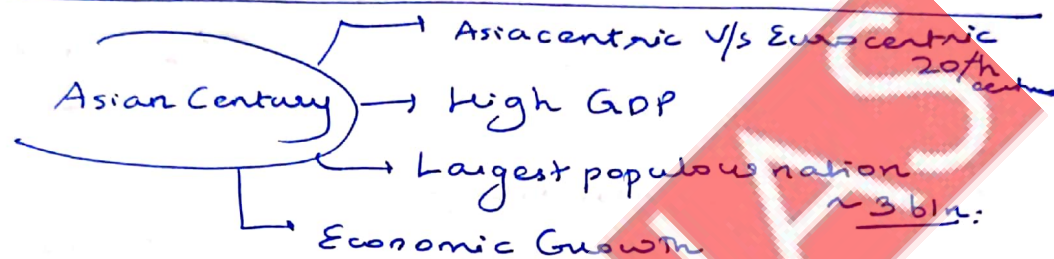 Asiacentric V/s Eurocentric
20th
Asian Century → High GDP
Largest populous nation
~ 3 bln.
Economic Growth
IAS